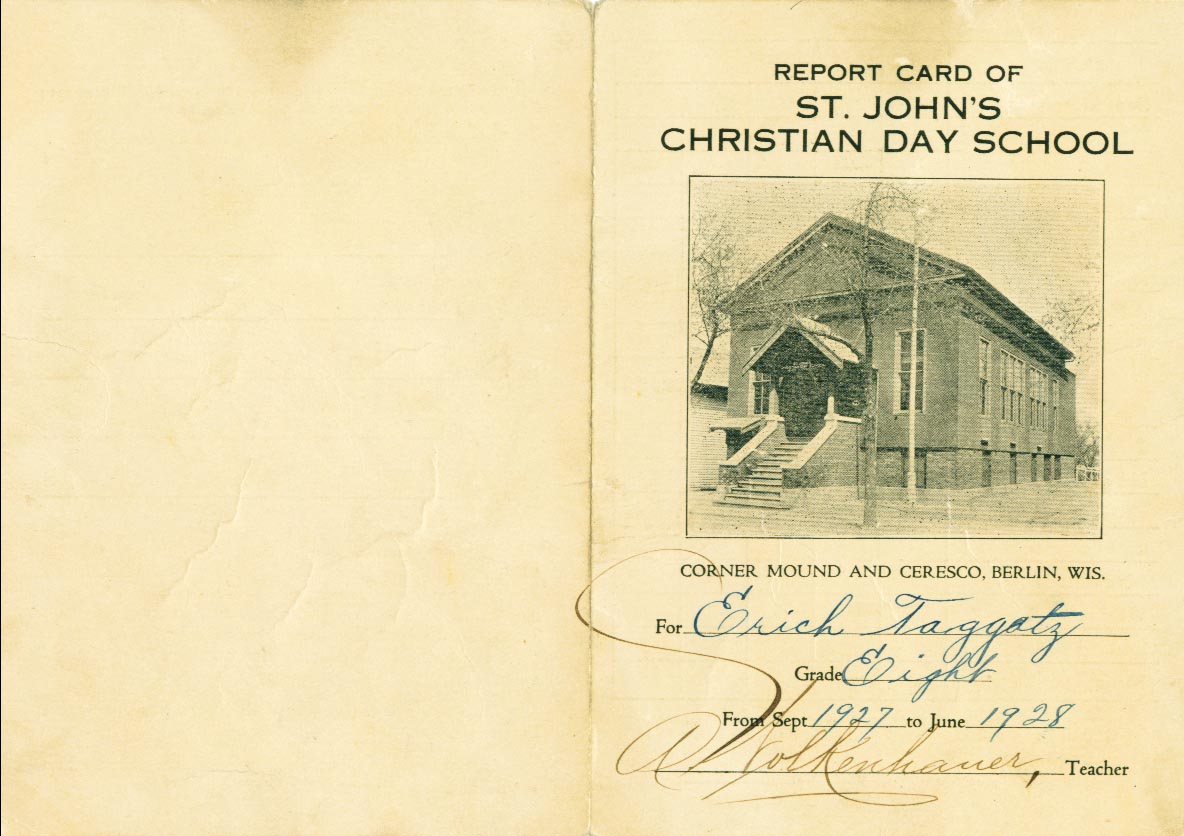 REPORT CARD OF
ST. JOHN'S
CHRISTIAN DAY SCHOOL
CORNER MOUND AND CERESCO, BERLIN, WIS.
For Erich Taggatz
Grade Eight
From Sept 1927 to June 1928
A Wolkenhauer, Teacher